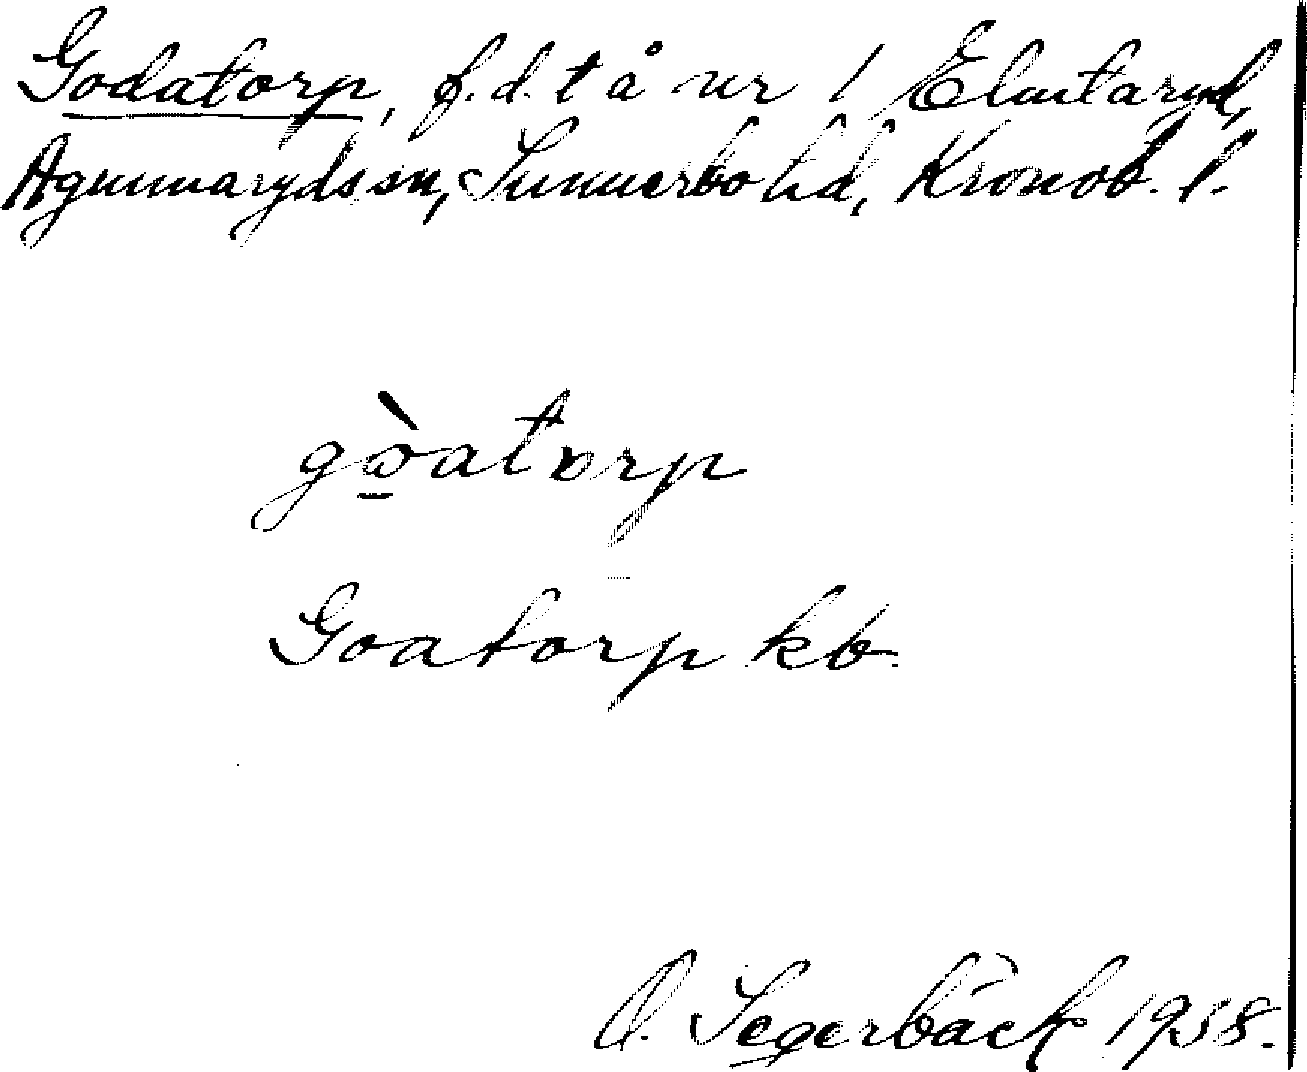 Godatorp, f.d. t å nr 1 Elmtaryd,
Agunnarydssn, Sunnerbo hd, Kronob. l.
gòatorp
Goatorp kb.
O. Segerbäck 1958.